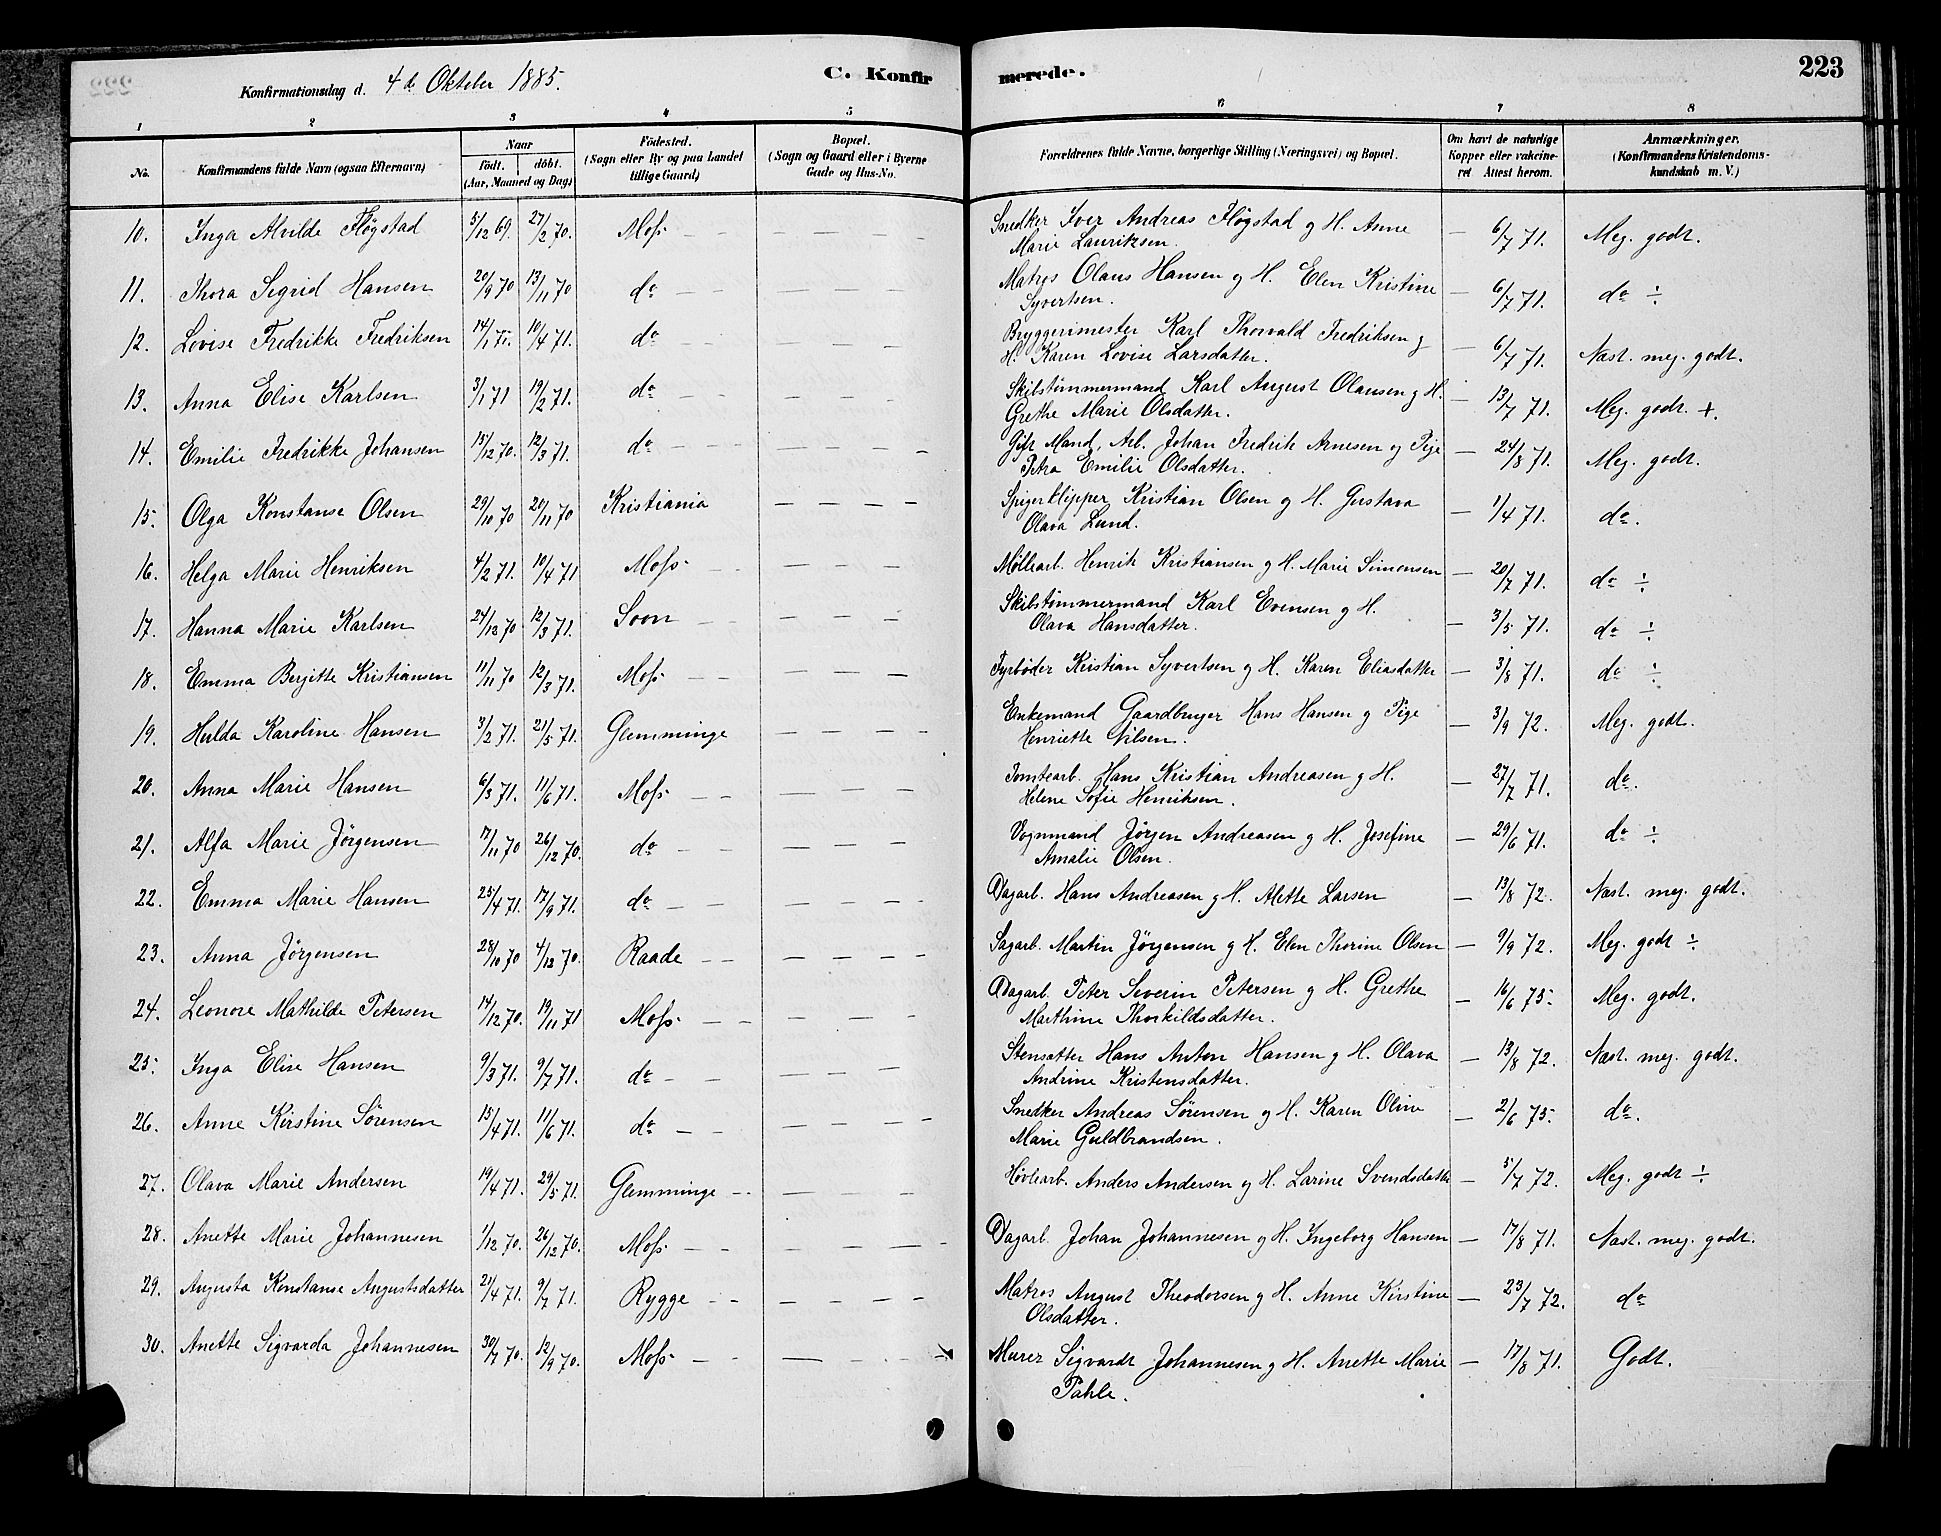 Konfirmationsdag d. 4de Oktober 1885. C. Konfirmerede. 223
1 2 3 4 5 6 7 8
No. Konfirmandens fulde Navn (ogsaa Efternavn) Naar födt. döbt. (Aar, Maaned og Dag) Födested. (Sogn eller By og paa Landet tillige Gaard) Bopæl. (Sogn og Gaard eller i Byerne Gade og Hus-No. Forældrenes fulde Navne, borgerlige Stilling (Næringsvei) og Bopæl. Om havt de naturlige Kopper eller vakcineret Attest herom. Anmærkninger. (Konfirmandens Kristendomskundskab m. V.)
10. Inga Alvilde Fløgstad 5/12 69. 27/2 70. Moss — — — — — Snedker Iver Andreas Fløgstad g H. Anne — 6/7 71. Meg. godt.
Marie Lauriksen.
11. Thora Sigrid Hansen 20/9 70 13/11 70 do — — — — — Matros Olaus Hansen og H. Elen Kristine — 6/7 71. do ÷
Syvertsen.
12. Lovise Fredrikke Fredriksen 14/1 71. 10/4 71. do — — — — — Bryggerimester Karl Thorvald Fredriksen g — 6/7 71. Næst. meg. godt.
H. Karen Lovise Larsdatter.
13. Anna Elise Karlsen 3/1 71 19/2 71. do — — — — — Skibstømmermand Karl August Olausen g H. — 13/7 71. Meg. godt. +.
Grethe Marie Olsdatter.
14. Emilie Fredrikke Johansen 15/12 70. 12/3 71. do — — — — — Gift Mand, Arb. Johan Fredrik Arnesen og Pige — 24/8 71. Meg. godt.
Petra Emilie Olsdatter.
15. Olga Konstanse Olsen 29/10 70 20/11 70 Kristiania — — — Spigerklipper Kristian Olsen og H. Gustava — 1/4 71. do.
Olava Lund.
16. Helga Marie Henriksen 4/2 71. 10/4 71 Moss — — — — — Møllearb. Henrik Kristiansen g H. Marie Simonsen — 20/7 71. do ÷
17. Hanna Marie Karlsen 24/12 70 12/3 71. Soon — — — — — Skibstømmermand Karl Evensen g H. — 3/5 71. do ÷
Olava Hansdatter.
18. Emma Birgitte Kristiansen 11/11 70 12/3 71. Moss — — — — — Fyrbøder Kristian Syvertsen og H. Karen Eliasdatter — 3/8 71. do ÷
19. Hulda Karoline Hansen 3/2 71. 21/5 71. Glemminge — — — Enkemand Gaardbruger Hans Hansen g Pige — 3/9 72. Meg. godt.
Henriette Nilsen.
20. Anna Marie Hansen 6/3 71. 11/6 71. Moss — — — — — Tomtearb. Hans Kristian Andreasen g H. — 27/7 71. do.
Helene Sofie Henriksen.
21. Alfa Marie Jörgensen 17/11 70 26/12 70. do — — — — — Vognmand Jörgen Andreasen g H. Josefine — 29/6 71. do ÷
Amalie Olsen.
22. Emma Marie Hansen 25/4 71. 17/9 71. do — — — — — Dagarb. Hans Andreasen g H. Alette Larsen — 13/8 72. Næst. meg. godt.
23. Anna Jörgensen 28/10 70 4/12 70. Raade — — — — — Sagarb. Martin Jörgensen g H. Elen Thorine Olsen — 9/9 72. Meg. godt ÷
24. Leonore Mathilde Petersen 14/12 70. 19/11 71 Moss — — — — — Dagarb. Peter Severin Petersen g H. Grethe — 16/6 75. Meg. godt.
Marthine Thorkildsdatter.
25. Inga Elise Hansen 9/3 71. 9/7 71. do — — — — — Stensætter Hans Anton Hansen g H. Olava — 13/8 72. Næst. meg. godt.
Andrine Kristensdatter.
26. Anne Kirstine Sørensen 15/4 71. 11/6 71. do — — — — — Snedker Andreas Sørensen g H. Karen Oline — 2/6 75. do.
Marie Guldbrandsen.
27. Olava Marie Andersen 19/4 71. 29/5 71. Glemminge — — — — Høvlearb. Anders Andersen og H. Larine Svendsdatter — 5/7 72. Meg. godt ÷
28. Anette Marie Johannesen 1/12 70. 26/12 70. Moss — — — — — Dagarb. Johan Johannesen g H. Ingeborg Hansen — 17/8 71. Næst. meg. godt.
29. Augusta Konstanse Augustsdatter 21/4 71. 9/7 71. Rygge — — — — — Matros August Theodorsen g H. Anne Kirstine — 23/7 72. do
Olsdatter.
30. Anette Sigvarda Johannesen 30/7 70. 12/9 70. Moss — — — — — Murer Sigvardt Johannesen g H. Anette Marie — 17/8 71. Godt.
Pahle.